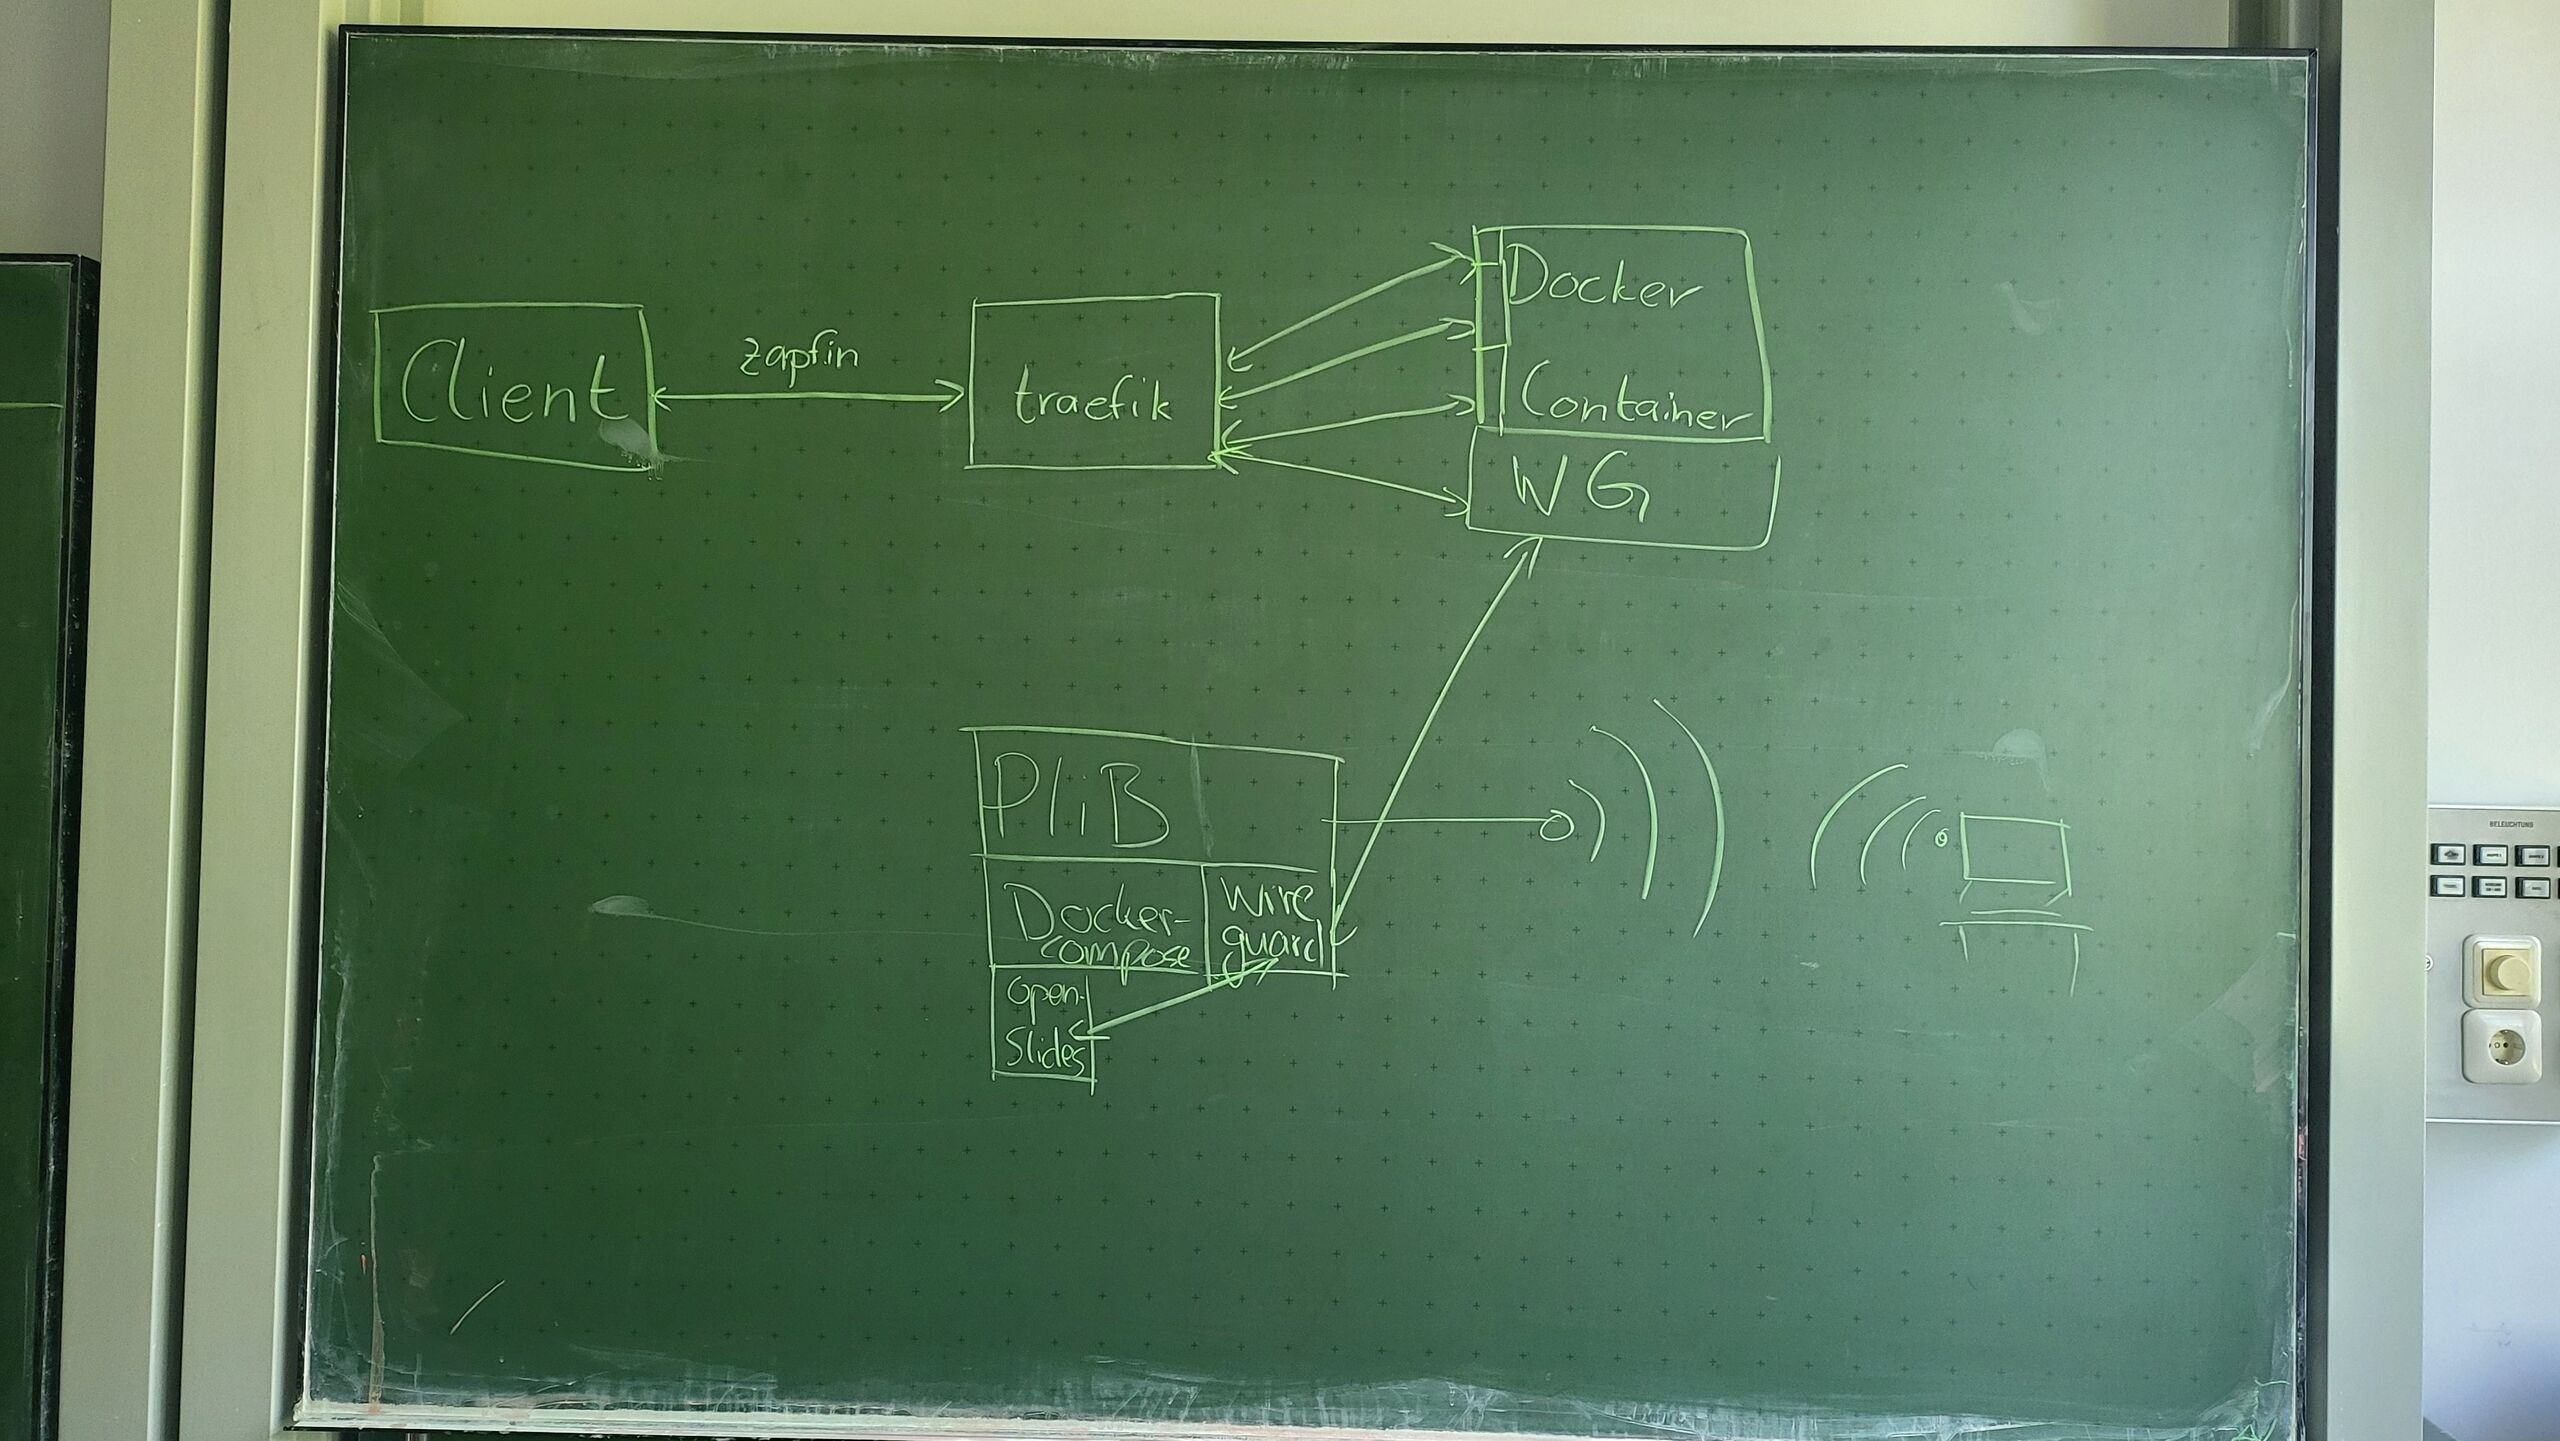 Client
zapf.in
traefik
Docker
Container
WG
PliB
Docker-
compose
Wire
guard
Open-
Slides
BELEUCHTUNG